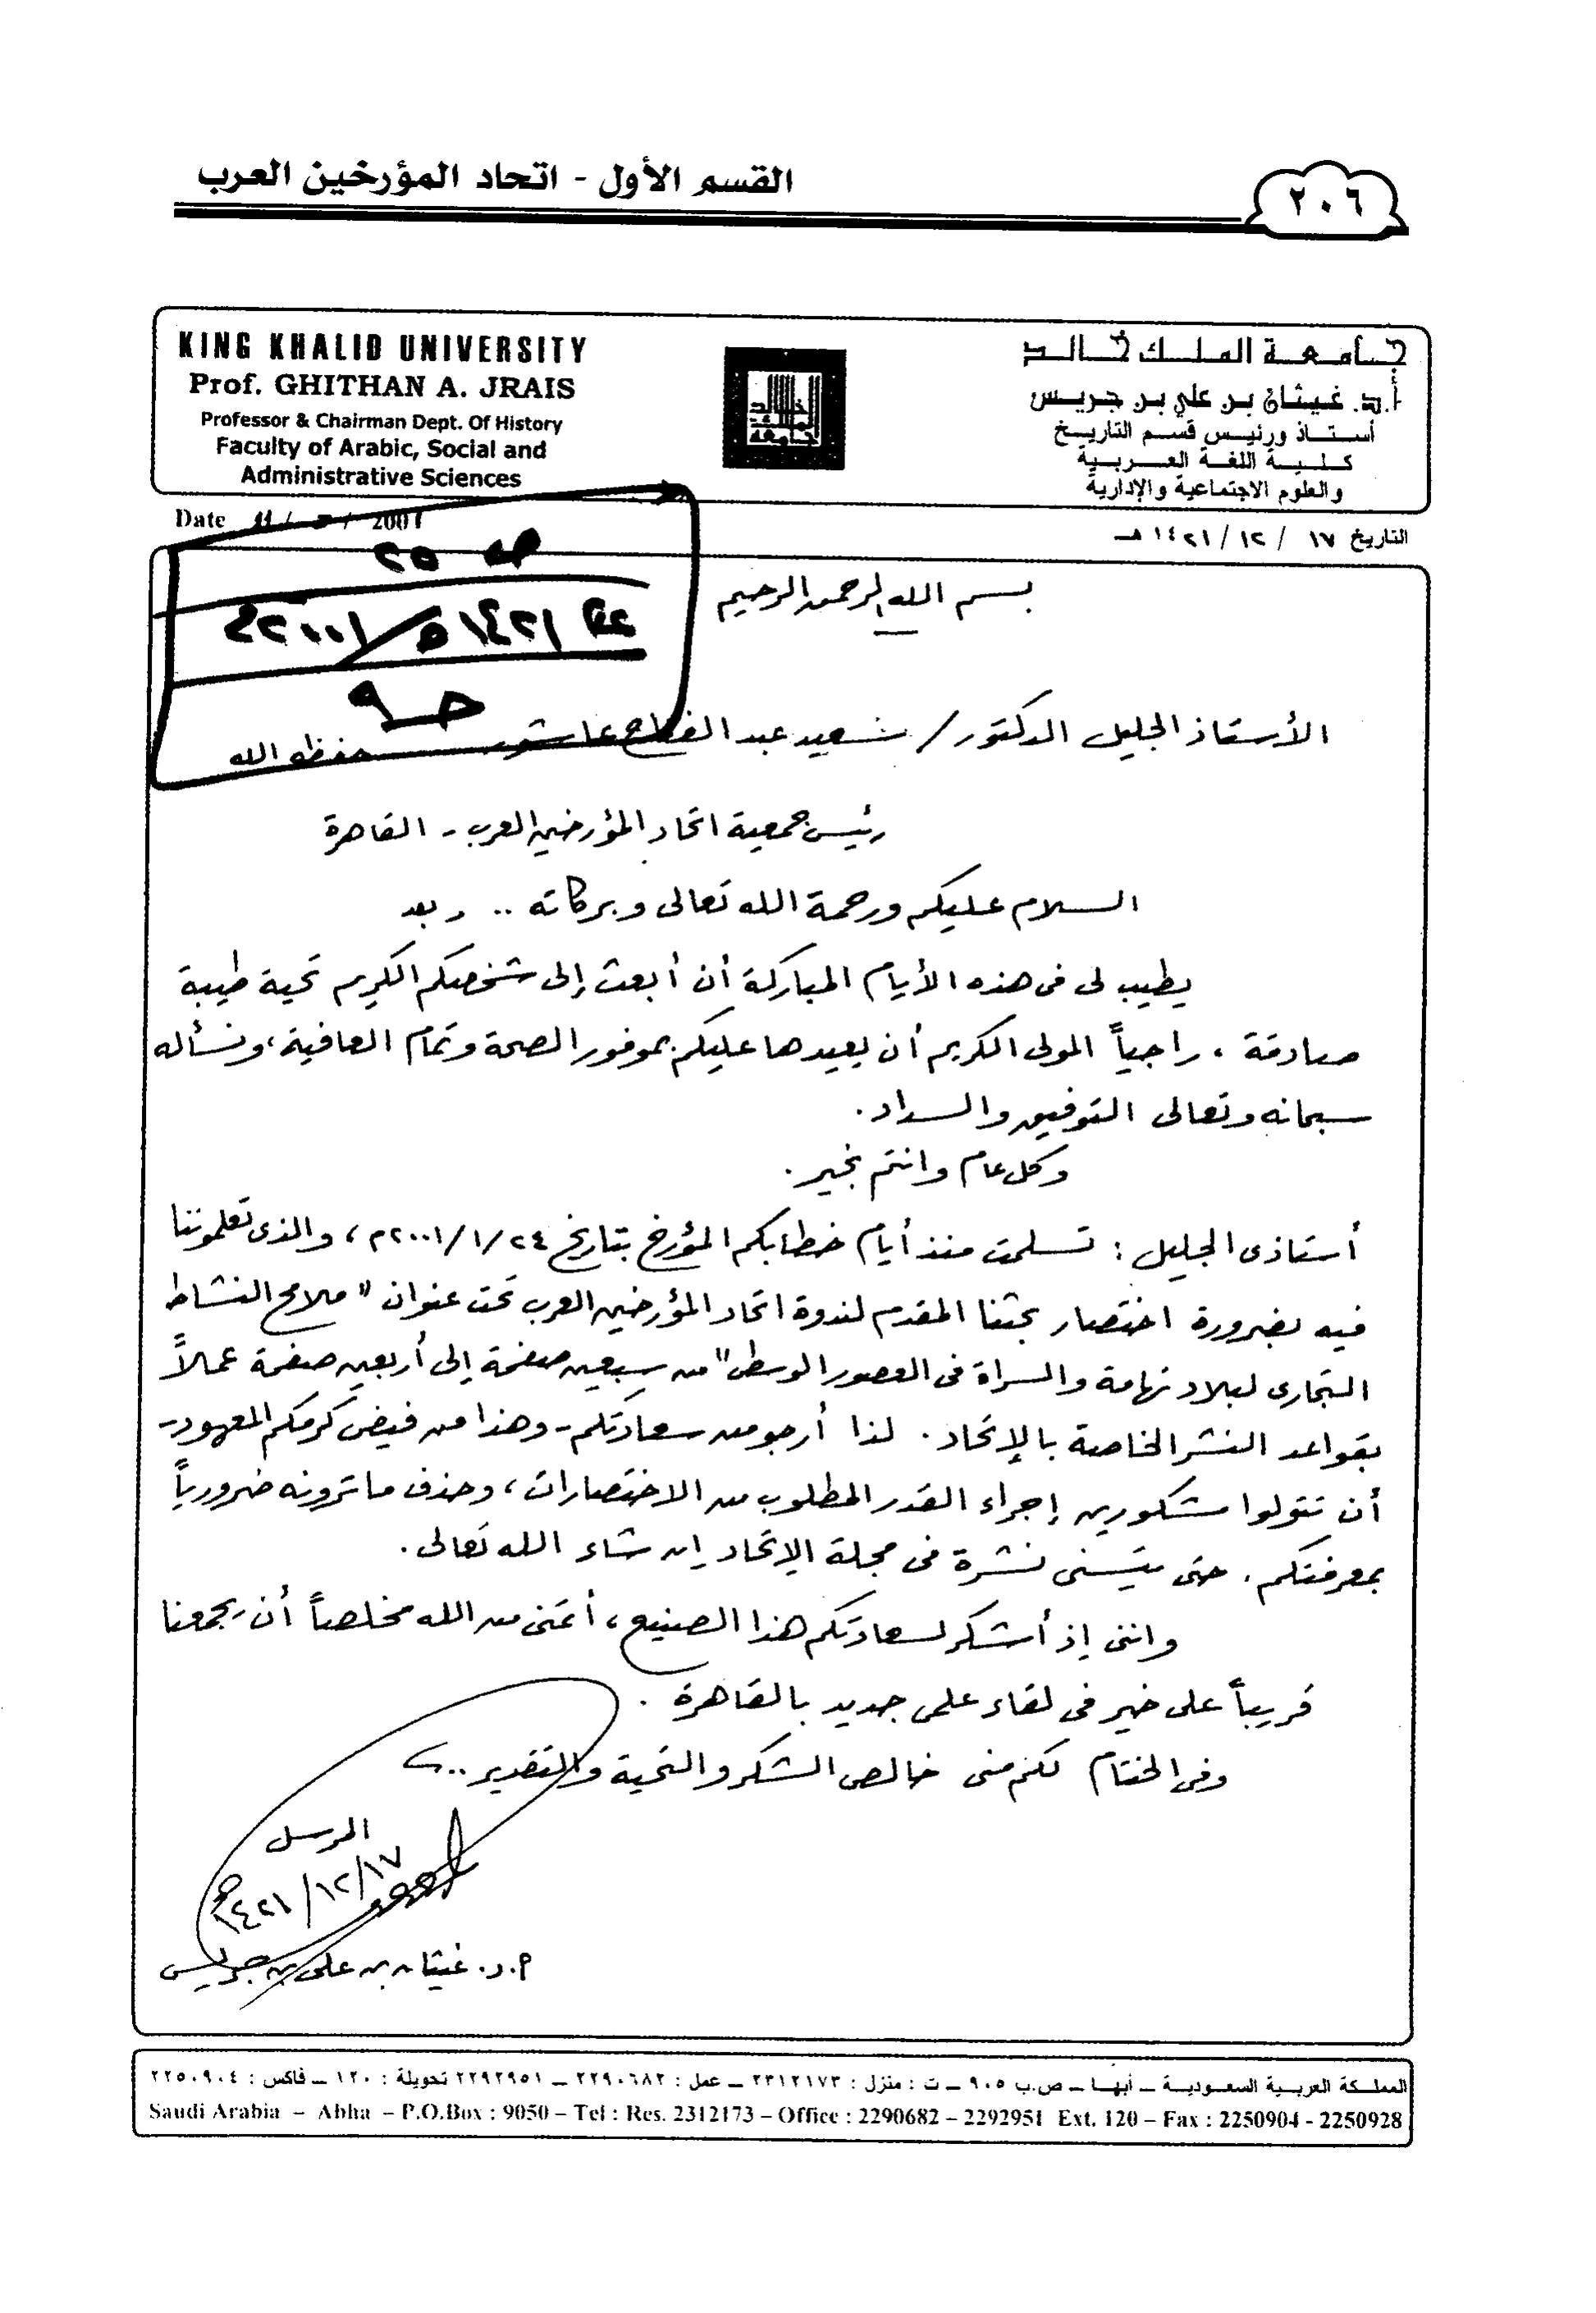 القسم الأول - اتحاد المؤرخين العرب
٢٠٦
KING KHALID UNIVERSITY
Prof. GHITHAN A. JRAIS
Professor & Chairman Dept. Of History
Faculty of Arabic, Social and
Administrative Sciences
جامعة الملك خالد
أ.د. غيثان بن علي بن جريس
أستاذ ورئيس قسم التاريخ
كلية اللغة العربية
والعلوم الاجتماعية والإدارية
جامعة الملك خالد
Date 11/ / 2001
التاريخ ١٧ / ١٢ / ١٤٢١ هـ
ص ٢٥
١٤٢١هـ/٢٠٠١م
حـ٩
بسم الله الرحمن الرحيم
الأستاذ الجليل الدكتور / سعيد عبد الفتاح عاشور حفظه الله
رئيس جمعية اتحاد المؤرخين العرب - القاهرة
السلام عليكم ورحمة الله تعالى وبركاته .. وبعد
يطيب لى فى هذه الأيام المباركة أن أبعث إلى شخصكم الكريم تحية طيبة
صادقة ، راجياً المولى الكريم أن يعيدها عليكم بموفور الصحة وتمام العافية، ونسأله
سبحانه وتعالى التوفيق والسداد.
وكل عام وانتم بخير.
أستاذى الجليل : تسلمت منذ أيام خطابكم المؤرخ بتاريخ ٢٤/١/٢٠٠١م، والذى تعلموننا
فيه بضرورة اختصار بحثنا المقدم لندوة اتحاد المؤرخين العرب تحت عنوان "ملامح النشاط
التجارى لبلاد تهامة والسراة فى العصور الوسطى" من سبعين صفحة إلى أربعين صفحة عملاً
بقواعد النشر الخاصة بالإتحاد. لذا أرجو من سعادتكم - وهذا من فيض كرمكم المعهود-
أن تتولوا مشكورين إجراء القدر المطلوب من الاختصارات، وحذف ما ترونه ضرورياً
بمعرفتكم. حتى يتسنى نشرة فى مجلة الإتحاد إن شاء الله تعالى.
واننى إذ أشكر لسعادتكم هذا الصنيع، أتمنى من الله مخلصاً أن يجمعنا
قريباً على خير فى لقاء علمى جديد بالقاهرة .
وفى الختام لكم منى خالص الشكر والتحية والتقدير..
المرسل
١٤٢١/١٢/١٧هـ
أ.د. غيثان بن على بن جريس
المملكة العربية السعودية – أبها – ص.ب ٩٠٥ – ت : منزل : ٢٣١٢١٧٣ – عمل : ٢٢٩٠٦٨٢ – ٢٢٩٢٩٥١ تحويلة : ١٢٠ – فاكس : ٢٢٥٠٩٠٤
Saudi Arabia – Abha – P.O.Box : 9050 – Tel : Res. 2312173 – Office : 2290682 – 2292951 Ext. 120 – Fax : 2250904 - 2250928